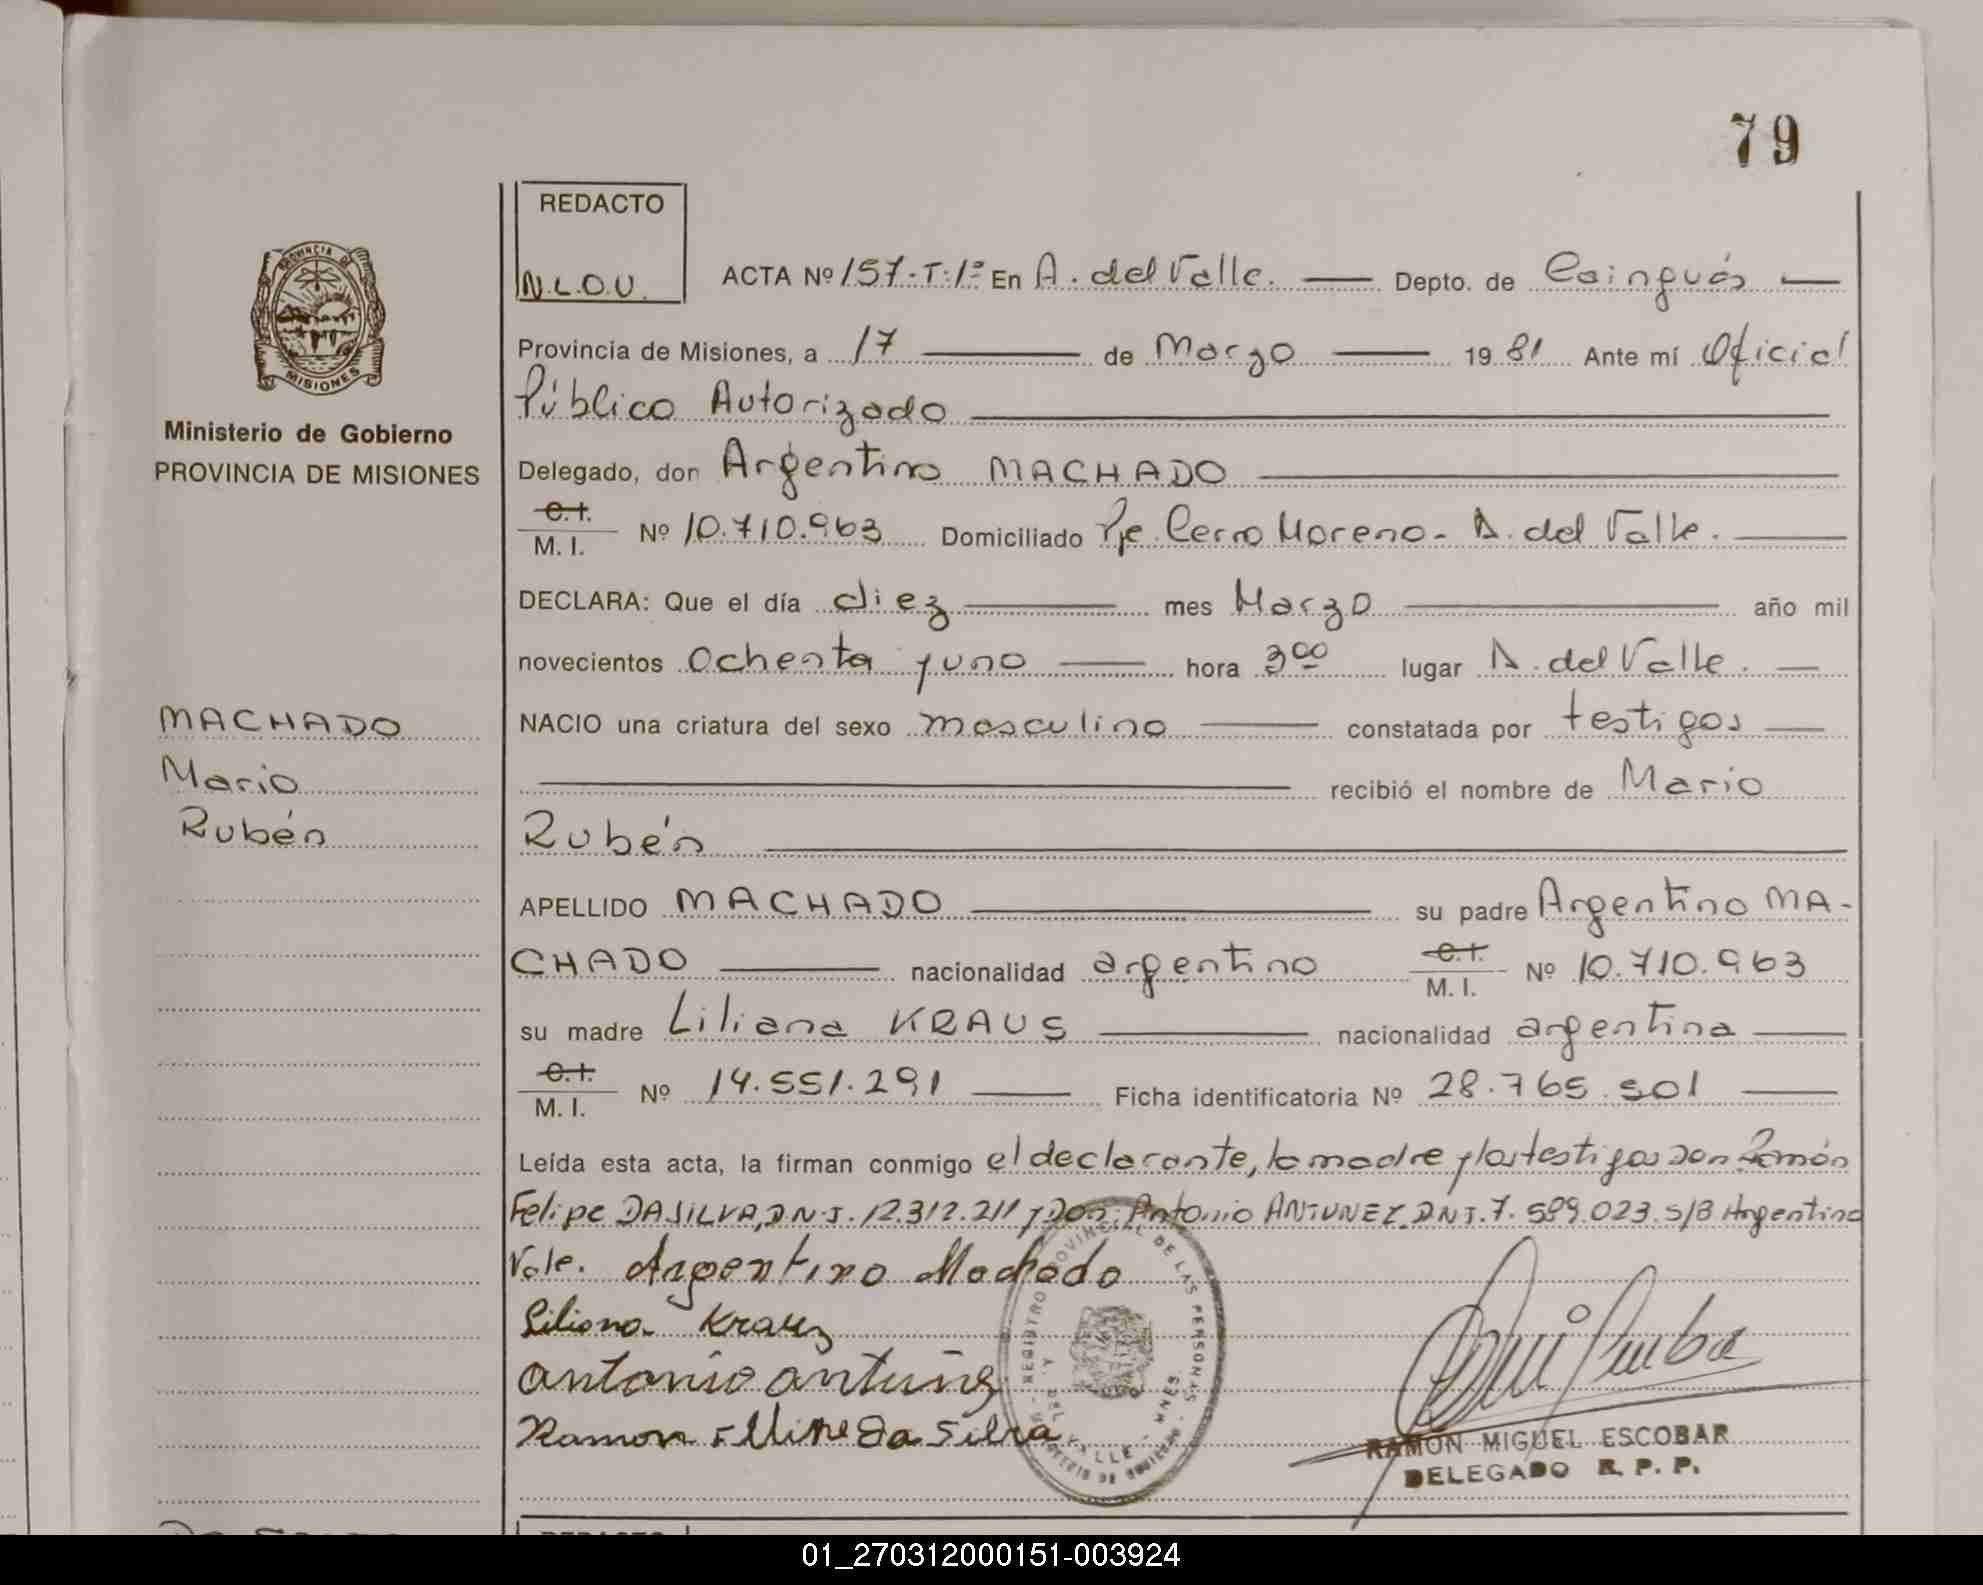 79
REDACTO
N.L.O.U.
ACTA Nº 157-T:1º En A. del Valle. Depto. de Cainguás
PROVINCIA DE
MISIONES
Provincia de Misiones, a 17 de Marzo 1981 Ante mí Oficial
Público Autorizado
Ministerio de Gobierno
PROVINCIA DE MISIONES
Delegado, don Argentino MACHADO
C.I.
M. I. Nº 10.710.963 Domiciliado Pje Cerro Moreno - A. del Valle.
DECLARA: Que el día diez mes Marzo año mil
novecientos ochenta y uno hora 3 00 lugar A. del Valle.
NACIO una criatura del sexo masculino constatada por testigos
recibió el nombre de Mario
Rubén
MACHADO
Mario
Rubén
APELLIDO MACHADO su padre Argentino MA-
CHADO nacionalidad argentino C.I. M. I. Nº 10.710.963
su madre Liliana KRAUS nacionalidad argentina
C.I.
M. I. Nº 14.551.291 Ficha identificatoria Nº 28.765.501
Leída esta acta, la firman conmigo el declarante, la madre y los testigos Don Ramón
Felipe DA SILVA, D.N.I. 12.312.211 y Don Antonio ANTUNEZ, D.N.I. 7.589.023. S/B Argentino
Vale. Argentino Machado
Liliana Krauz
Antonio antunez
Ramon Da Silva
REGISTRO PROVINCIAL DE LAS PERSONAS
A. DEL VALLE - MNES.
MINISTERIO DE GOBIERNO
RAMON MIGUEL ESCOBAR
DELEGADO R. P. P.
REDACTO
01_270312000151-003924